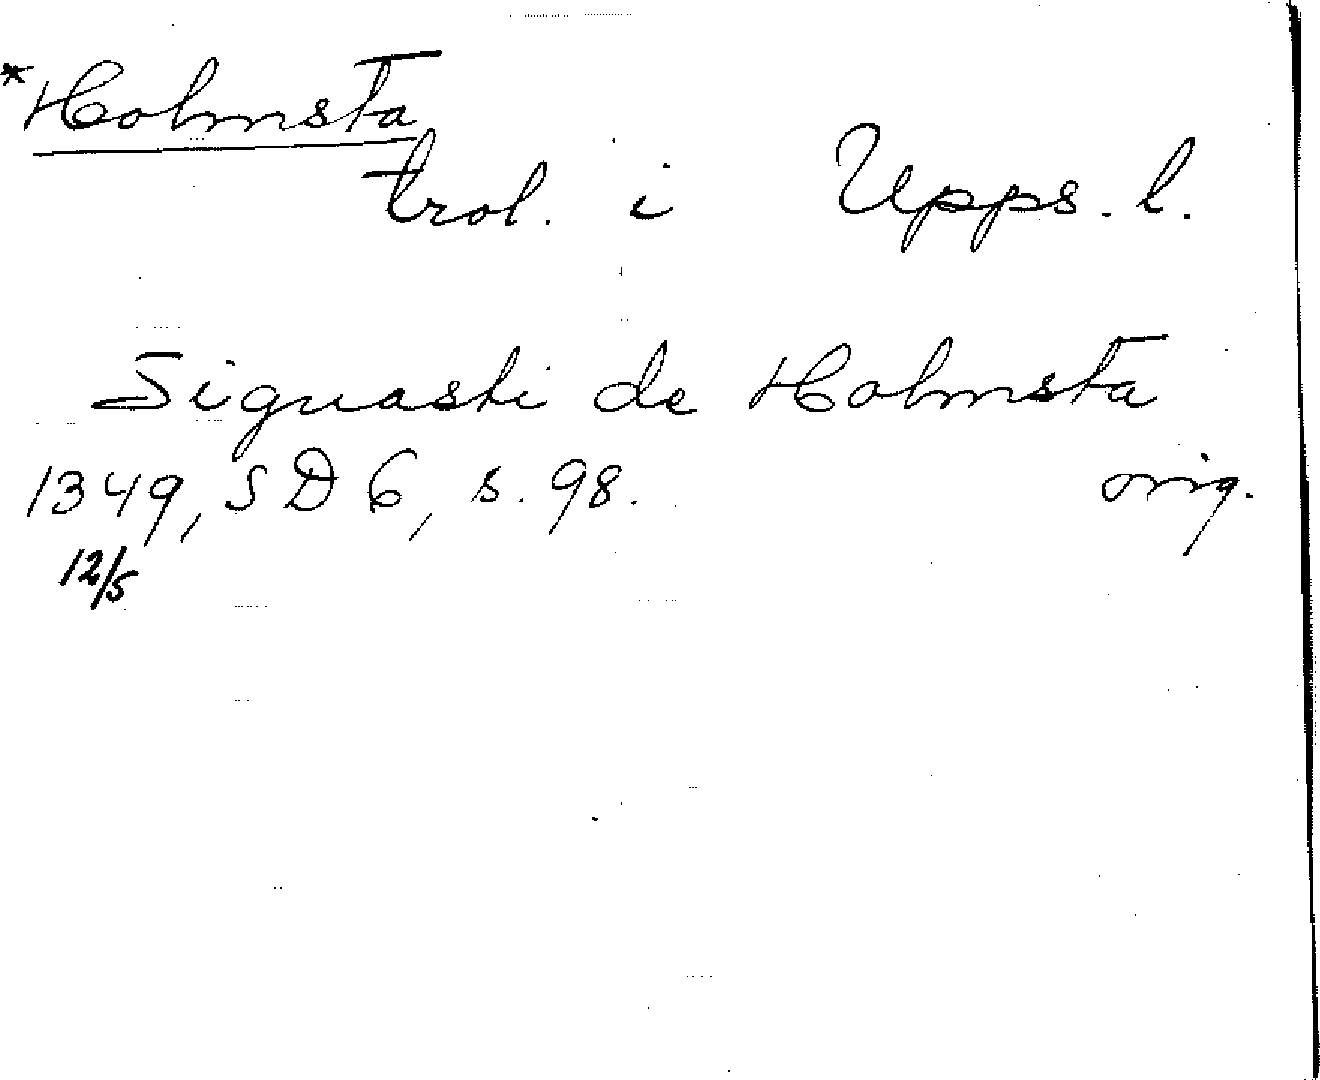 *Holmsta
trol. i Upps. l.
Siguasti de Holmsta
1349, SD 6, s. 98. orig.
12/5